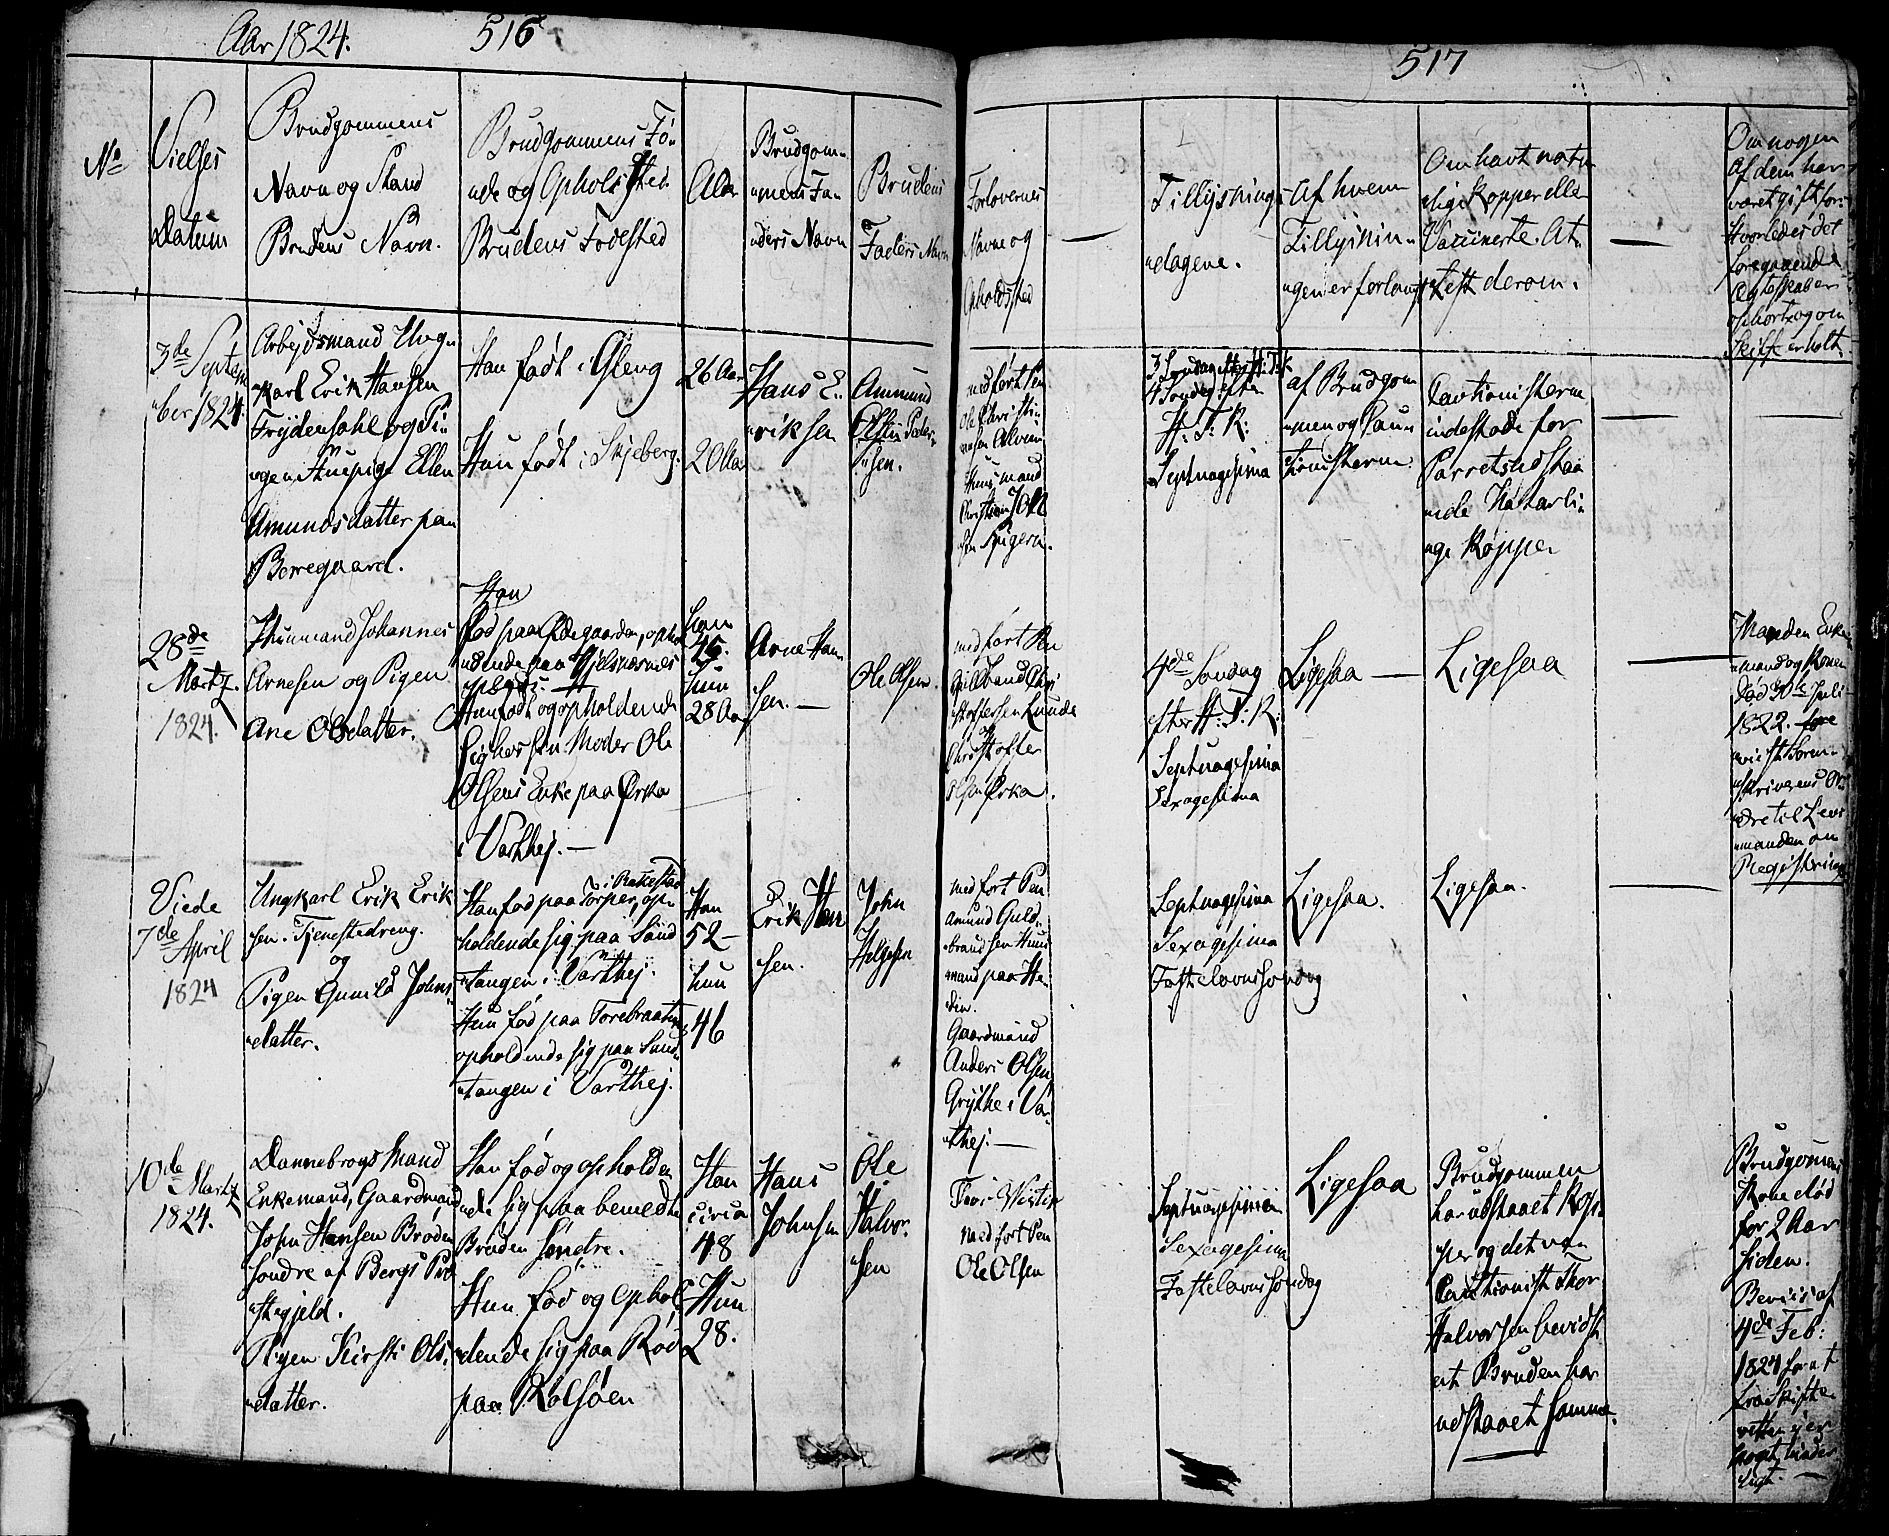 Aar 1824.
516
517
No
Vielses
Datum
Brudgommens
Navn og Stand
Brudens Navn.
Brudgommens Fö-
de og Opholssted
Brudens Fodested
Alder
Brudgom-
mens Fa-
ders Navn
Brudens
Faders Navn
Forlovernes
Navne og
Opholdsted
Tillysnings
dagene.
af hvem
Tillysnin-
gen er forlangt
Om havt natu
lige Kopper elle
Vaccinerte. At-
test derom.
Om nogen
af dem har
været gift for.
Hvorledes det
foregaaende
Ægteskaber
ophort og om
Skifte er holt.
3de Septem
ber 1824.
Arbejdsmand Ung-
karl Erik Hansen
Frydensdahl og Pi-
gen Ellen
Amundsdatter paa
Berregaard.
Han født i Gleng
Hun født i Skjeberg.
26 Aar
20 Aar
Hans E-
riksen
Ammund
Olsen Peder-
sen.
med fort Pen
Ole Christi-
Huusmand
Christian
3 Søndag efter H: T: K
4 Søndag efter
H: T: K:
Septuagesima
af Brudgom
men og Cau-
tionisterne
Cautionisterne
indestode for
Parrets udstaa
ende Naturli-
ge Kopper
28de
Martz
1824.
Huusmand Johannes
Arnesen og Pigen
Ane Olsdatter.
Han
fød paa Ødegaarden, opho
ldende paa
Hun født og opholdende
sig hos sin Moder Ole
Olsens Enke paa Ørka
i Varthej.
ham
45.
hun
28 Aar
Arne Han-
sen.
Ole Olsen.
med fort Pen
Guldbrand Chri
stoffersen Lunde
og
Christoffer
Olsen Ørka.
4de Søndag
efter H: T: K:
Septuagesima
Sexagesima
Ligesaa
Ligesaa
Manden Enke
mand og Konen
død 30te Juli
1822. fore
vist Soren-
skriverens Or-
dre til Lens
manden om
Registering
Viede
7de April
1824
Ungkarl Erik Erik
sen. Tjenestedreng.
og
Pigen Gunild Johns-
datter.
i Rakkestad
Han fød paa Torper, op-
holdende sig paa Sand
tangen i Varthej.
Hun fød paa Torebraaten
opholdende sig paa Sand-
tangen i Varthej.
Han
52
hun
46
Erik Han
sen.
John
Helgesen
med fort Pen
Amund Guld-
brandsen Huus
mand paa He-
din.
Gaardmand
Anders Olsen
Grythe i Var-
thej.
Septuagesima
Sexagesima
Fastelavnssondag
Ligesaa.
Ligesaa.
10de Martz
1824.
Dannebrogs Mand
Enkemand, Gaardmand
John Hansen Brøden
søndre af Bergs Præ
stegjeld.
Pigen Kirsti Ols-
datter.
Han fød og opholden
de sig paa bemeldte
Brøden Søndre.
Hun fød og ophol
dende sig paa Rød
paa Rolsöen
Han
circa
48
Hun
28.
Hans
Johnsen
Ole
Halvor-
sen
med fort Pen
Ole Olsen
Septuagesima
Sexagesima
Fastelavnssondag
Ligesaa
Brudgommen
har udstaaet Kop-
per og det
Cautionist Thor
Halvorsen bevidst
at Bruden har
udstaaet samme.
Brudgomens
Kone død
for 2 Aar
siden.
Beviis af
4de Feb:
1824 for at
fra Skifte
retten ej er
noget hinder
ligt.